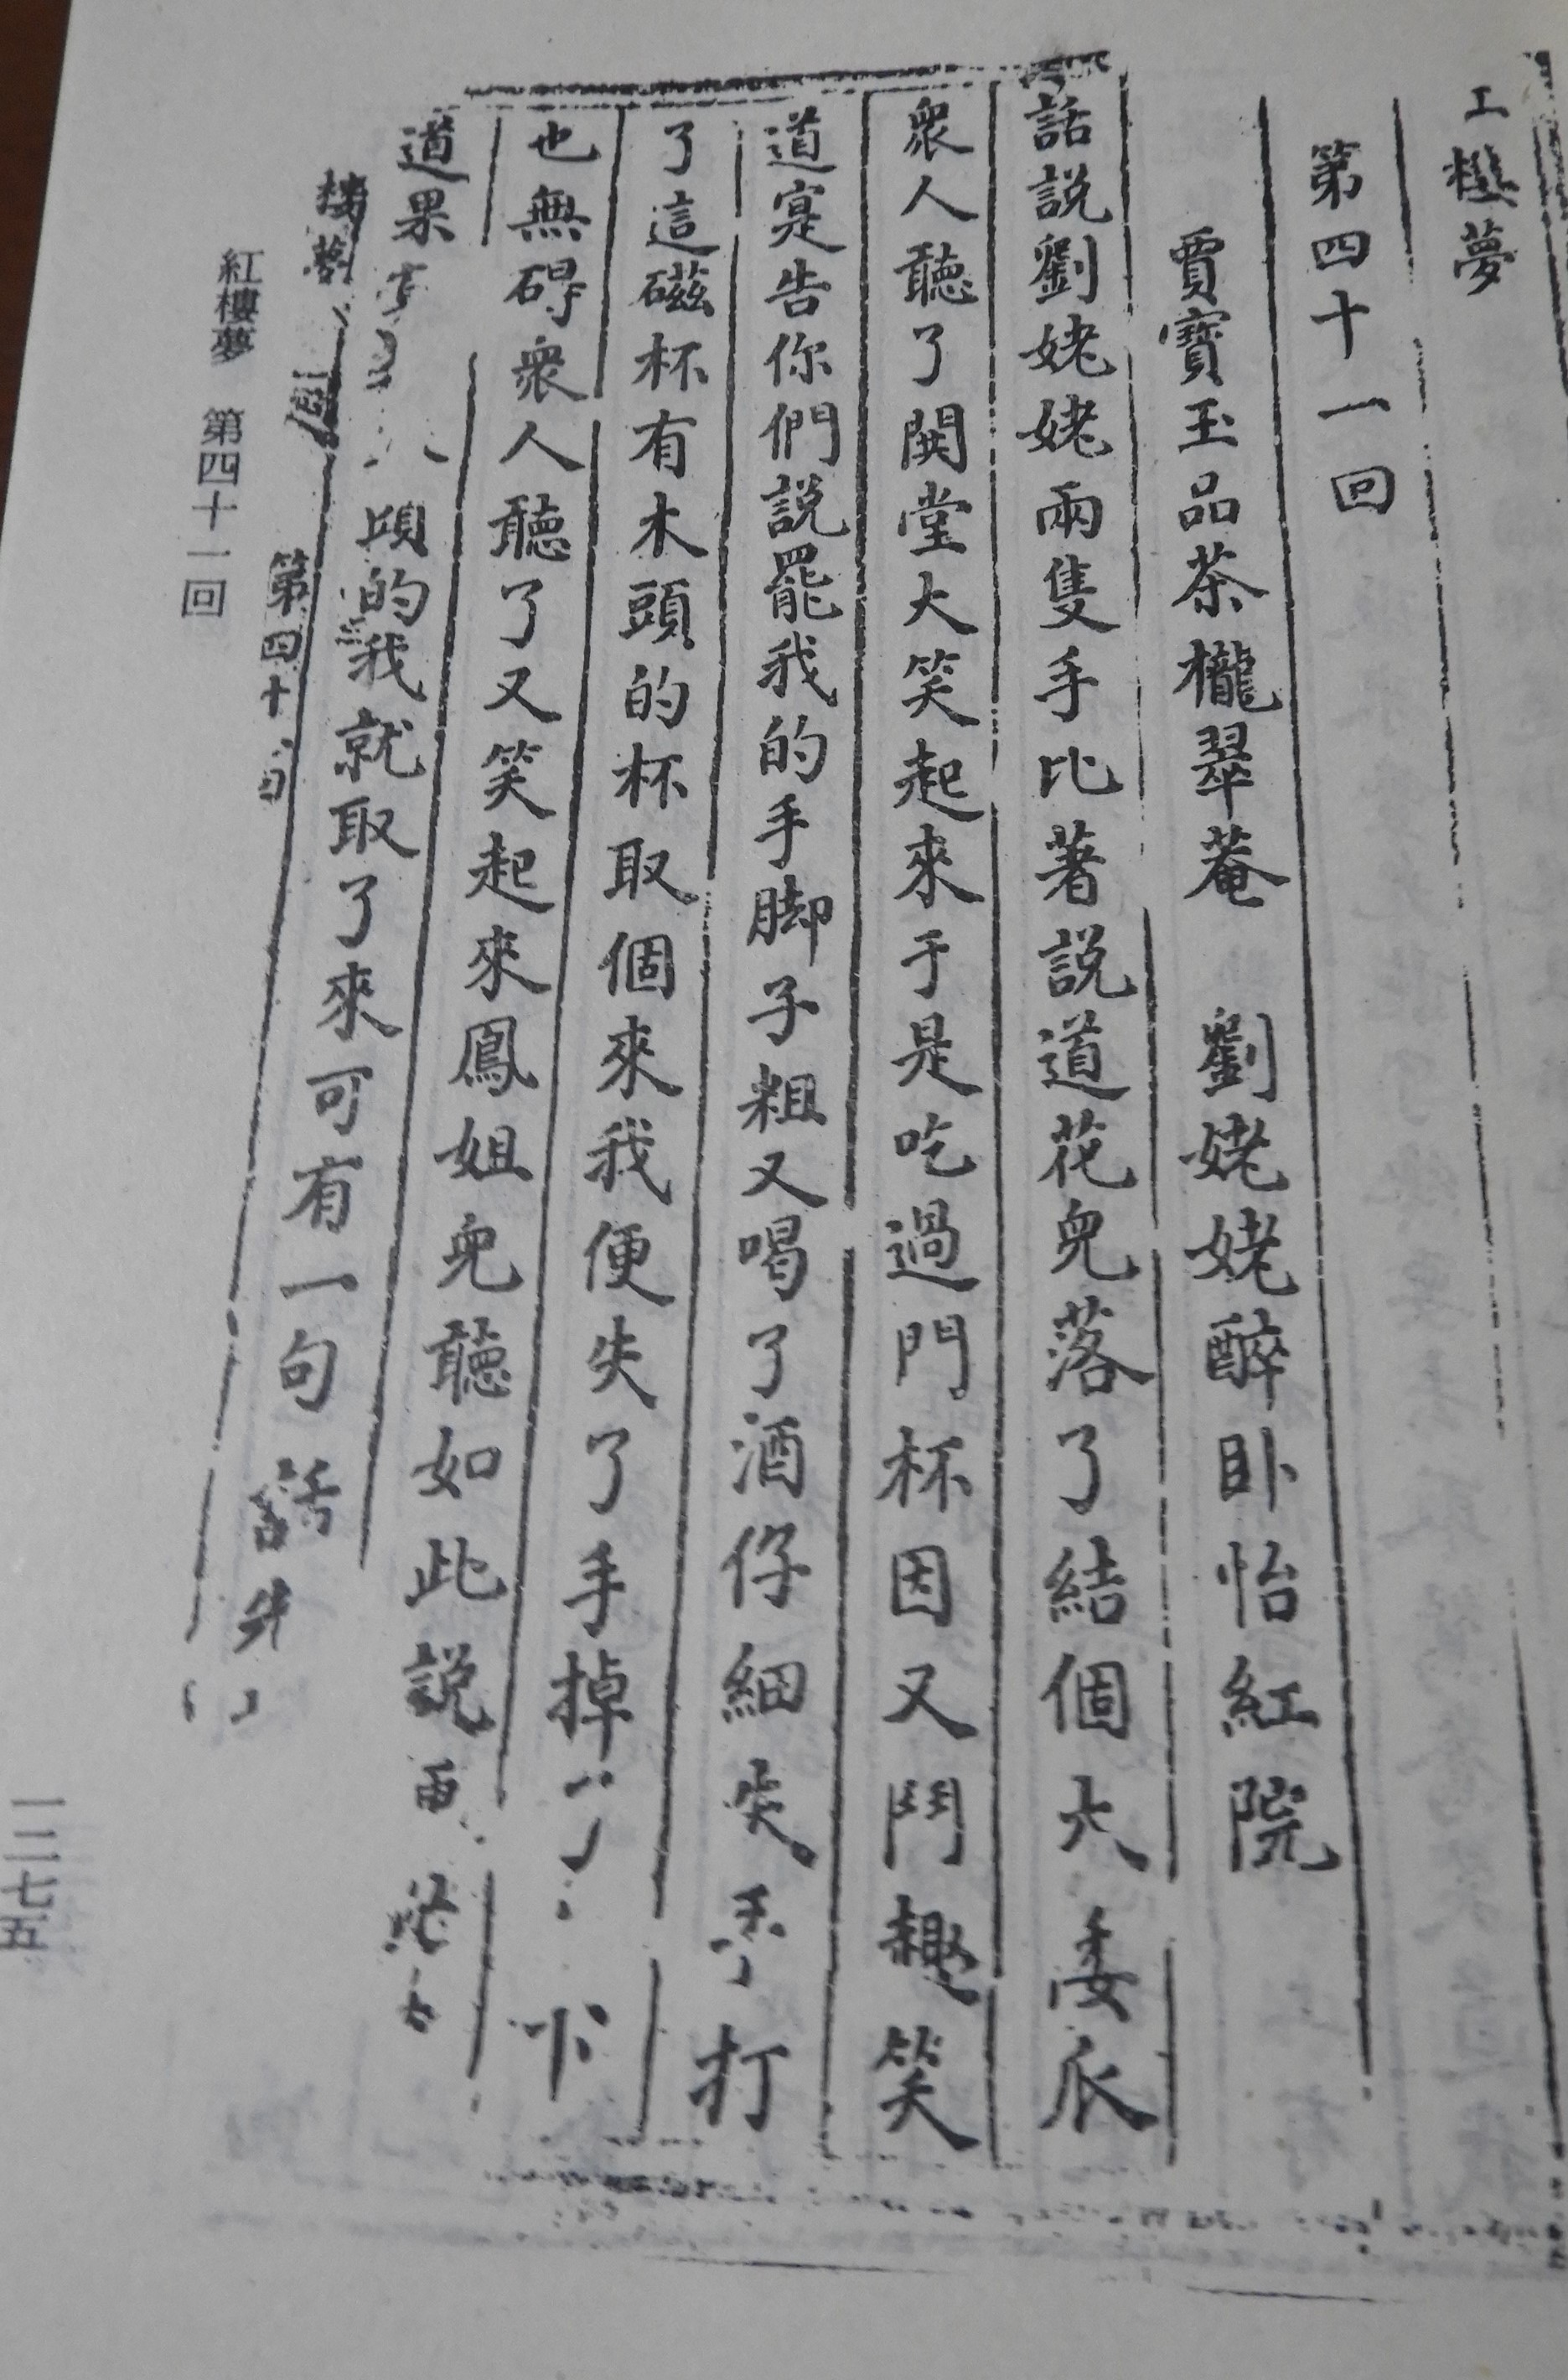 樓夢
第四十一回
賈寳玉品茶櫳翠菴　劉姥姥醉卧怡紅院
話説劉姥姥兩隻手比著説道花兒落了結個大委瓜
衆人聽了閧堂大笑起來于是吃過門杯因又鬥趣笑
道寔告你們説罷我的手脚子粗又喝了酒仔細失手打
了這磁杯有木頭的杯取個來我便失了手掉了下
也無碍衆人聽了又笑起來鳳姐兒聽如此説
道果 的我就取了來可有一句話先
樓夢 第四十
紅樓夢　第四十一回
一二七五